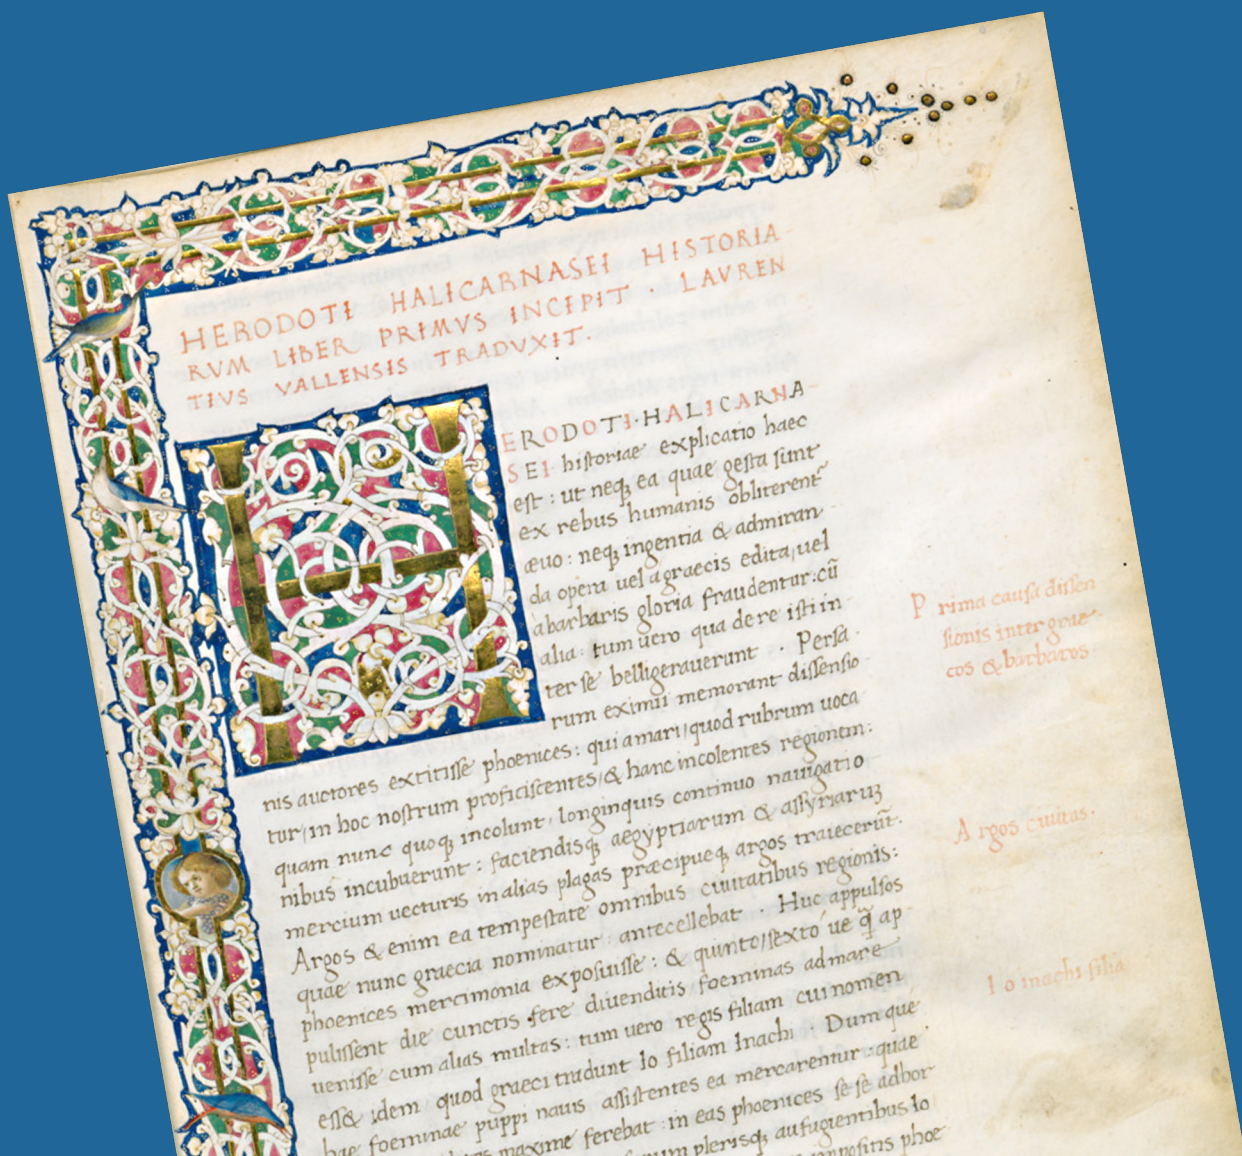 HERODOTI HALICARNASEI HISTORIA
RVM LIBER PRIMVS INCIPIT . LAVREN
TIVS VALLENSIS TRADVXIT.
HERODOTI·HALICARNA
SEI historiae explicatio haec
est : ut neqꝫ ea quae gesta sunt
ex rebus humanis obliterent᷑
æuo : neqꝫ ingentia & admiran
da opera uel a graecis edita, uel
a barbaris gloria fraudentur: cū
alia : tum uero qua de re isti in
ter se belligerauerunt . Persa
rum eximii memorant dissensio
nis auctores extitisse phoenices : qui a mari, quod rubrum uoca
tur, in hoc nostrum proficiscentes, & hanc incolentes regionem:
quam nunc quoqꝫ incolunt, longinquis continuo nauigatio
nibus incubuerunt : faciendisqꝫ aegyptiarum & assyriarum
mercium uecturis in alias plagas præcipueqꝫ argos traiecerūt.
Argos & enim ea tempestate omnibus ciuitatibus regionis:
quae nunc graecia nominatur antecellebat Huc appulsos
phoenices mercimonia exposuisse : & quinto, sexto ue q̄ ap
pulissent die cunctis fere diuenditis foeminas ad mare
uenisse cum alias multas : tum uero regis filiam cui nomen
ess& idem quod graeci tradunt Io filiam Inachi . Dum quę
hae foeminae puppi nauis assistentes ea mercarentur quae
maxime ferebat : in eas phoenices se se adhor
plerisqꝫ aufugientibus Io
phoe
Prima causa dissen
sionis inter grae
cos & barbaros
Argos ciuitas.
Io inachi filia